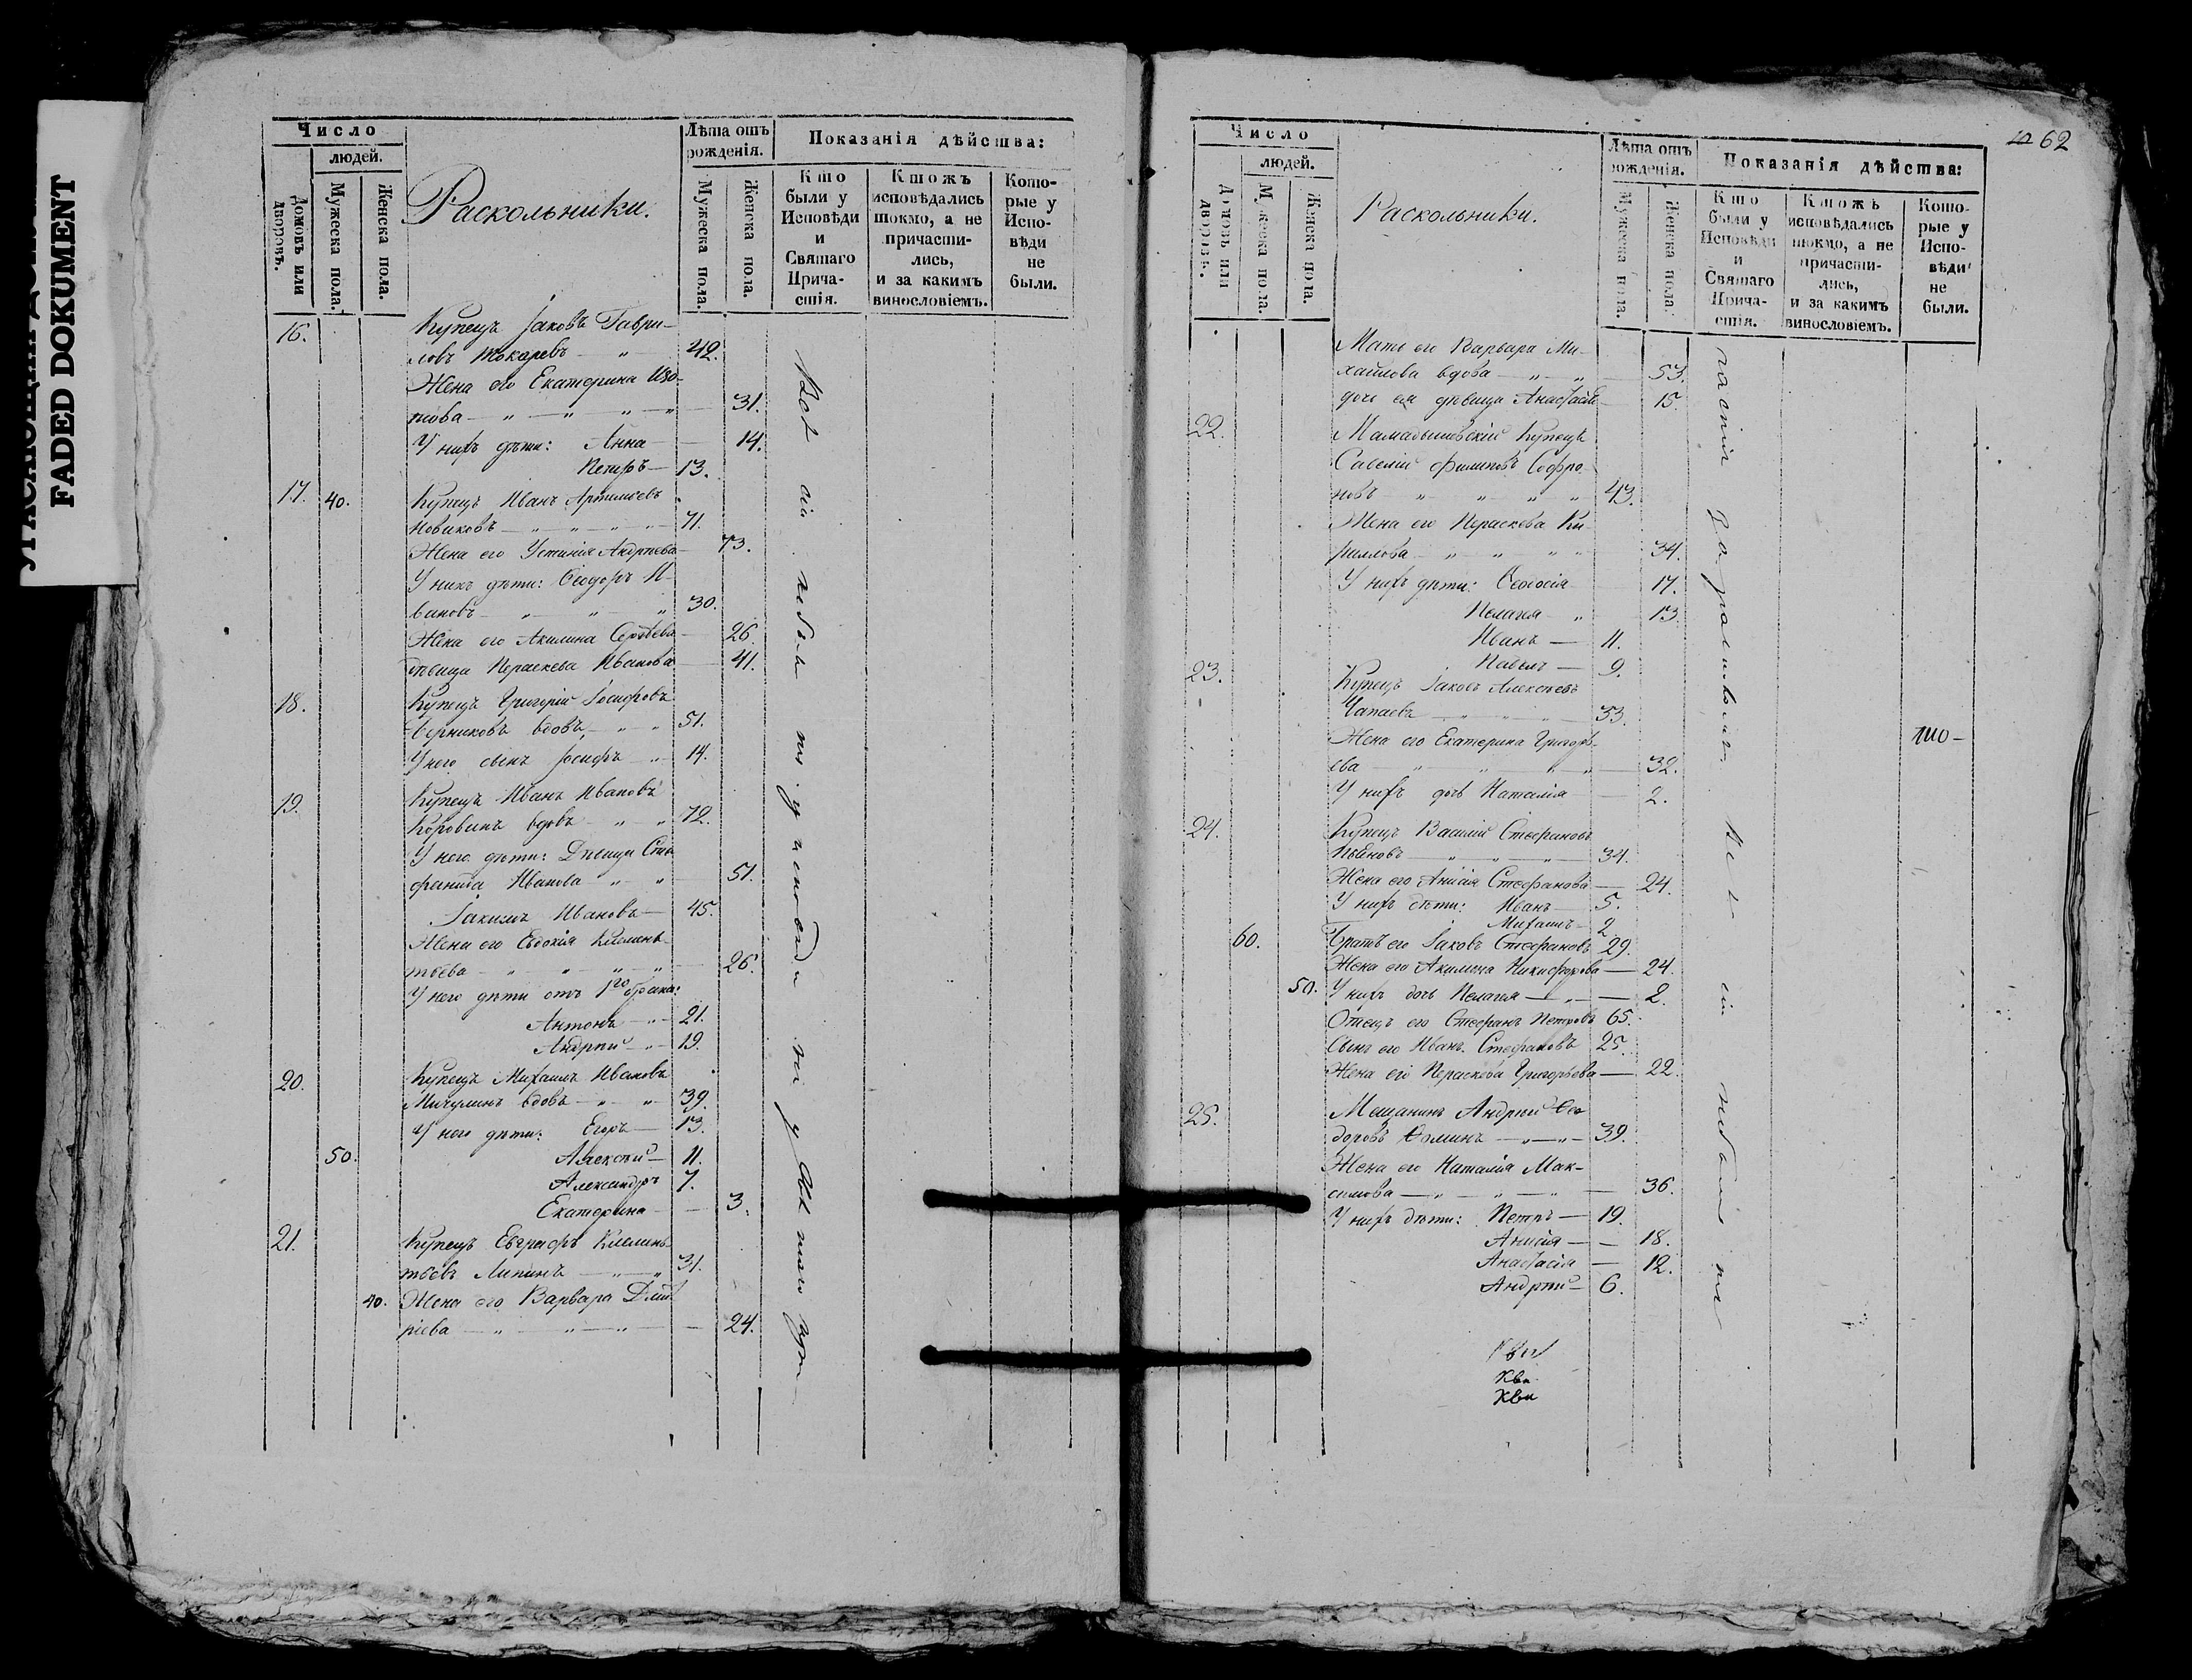 FADED DOKUMENT
Число
людей.
Домовъ или дворовъ.
Мужеска пола.
Женска пола.
Раскольники.
Лѣта отъ рожденія.
Мужеска пола.
Женска пола.
Показанія дѣйства:
Кто были у Исповѣди и Святаго Прича-стія.
Ктожъ исповѣдались токмо, а не причасти-лись, и за какимъ винословіемъ.
Кото-рые у Испо-вѣди не были.
16. Купецъ Іаковъ Гаври-
ловъ Токаревъ — „ — 42.
Жена его Екатерина Изо-
това — „ — „ — „ — 31.
У нихъ дѣти: Анна — 14.
Петръ — 13.
17. 40. Купецъ Иванъ Артемьевъ
Новиковъ — „ — „ — 71.
Жена его Устинія Андреева — 73.
У нихъ дѣти: Ѳеодоръ И-
вановъ — „ — „ — „ 30.
Жена его Акилина Сергѣева — 26.
дѣвица Пераскева Иванова — 41.
18. Купецъ Григорій Іосифовъ
Черниковъ вдовъ, — „ — „ 51.
У него сынъ Іосифъ — „ — 14.
19. Купецъ Иванъ Ивановъ
Коровинъ вдовъ — „ — „ 72.
У него дѣти: Дѣвица Сте-
фанида Иванова — „ — „ — 51.
Іакимъ Ивановъ — 45.
Жена его Евдокія Климен-
тьева — „ — „ — „ — 26.
У него дѣти отъ 1го брака:
Антонъ — „ — 21.
Андрей — „ — 19.
20. Купецъ Михаилъ Ивановъ
Мичуринъ вдовъ — „ — „ 39.
У него дѣти: Егоръ — 13.
50. Алексѣй — 11.
Александръ 7.
Екатерина — — 3.
21. Купецъ Евграфъ Климен-
тьевъ Липинъ — „ — „ 31.
40. Жена его Варвара Дмит-
ріева — „ — „ — „ — 24.
Всѣ сіи небыли ни у исповѣди ни у Святаго при-
62
Число
людей.
Домовъ или дворовъ.
Мужеска пола.
Женска пола.
Раскольники.
Лѣта отъ рожденія.
Мужеска пола.
Женска пола.
Показанія дѣйства:
Кто были у Исповѣди и Святаго Прича-стія.
Ктожъ исповѣдались токмо, а не причасти-лись, и за какимъ винословіемъ.
Кото-рые у Испо-вѣди не были.
Мать его Варвара Ми-
хайлова вдова — „ — „ — 53.
дочь ея дѣвица Анастасія — 15.
22. Мамадышскій Купецъ
Савелій Филиповъ Софро-
новъ — „ — „ — „ 43.
Жена его Пераскева Ки-
рилова — „ — „ — „ 34.
У нихъ дѣти: Ѳеодосія 17.
Пелагея — „ 13.
Иванъ — 11.
Павелъ — 9.
23. Купецъ Іаковъ Алексѣевъ
Чапаевъ — „ — „ — 33.
Жена его Екатерина Григорь-
ева — „ — „ — „ — 32.
У нихъ дочь Наталія — 2.
24. Купецъ Василій Стефановъ
— „ — „ — „ 34.
Жена его Анисія Стефанова — 24.
У нихъ дѣти: Иванъ — 5.
Михаилъ — 2.
60. Братъ его Іаковъ Стефановъ 29.
Жена его Акилина Никифорова — 24.
50. У нихъ дочь Пелагея — „ — 2.
Отецъ его Стефанъ Петровъ 65.
Сынъ его Иванъ Стефановъ 25.
Жена его Пераскева Григорьева — 22.
25. Мещанинъ Андрей Ѳео-
доровъ Ѳоминъ — „ — „ — 39.
Жена его Наталія Мак-
симова — „ — „ — „ — 36.
У нихъ дѣти: Петръ — 19.
Анисія — — 18.
Анастасія — 12.
Андрей — 6.
частія за раскольствомъ Всѣ сіи небыли ни